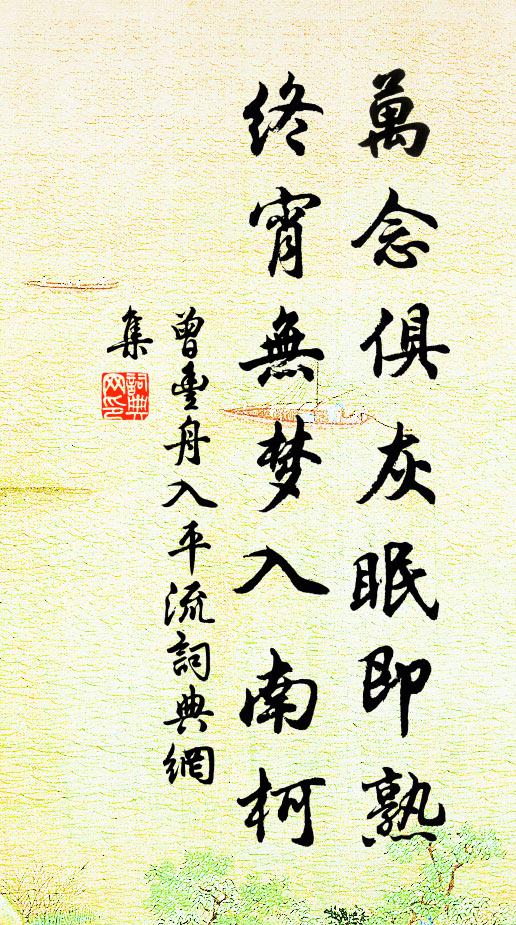 萬念俱灰眠即熟
终宵無梦入南柯
曾豊舟入平流詞典網
集
詞典
网印